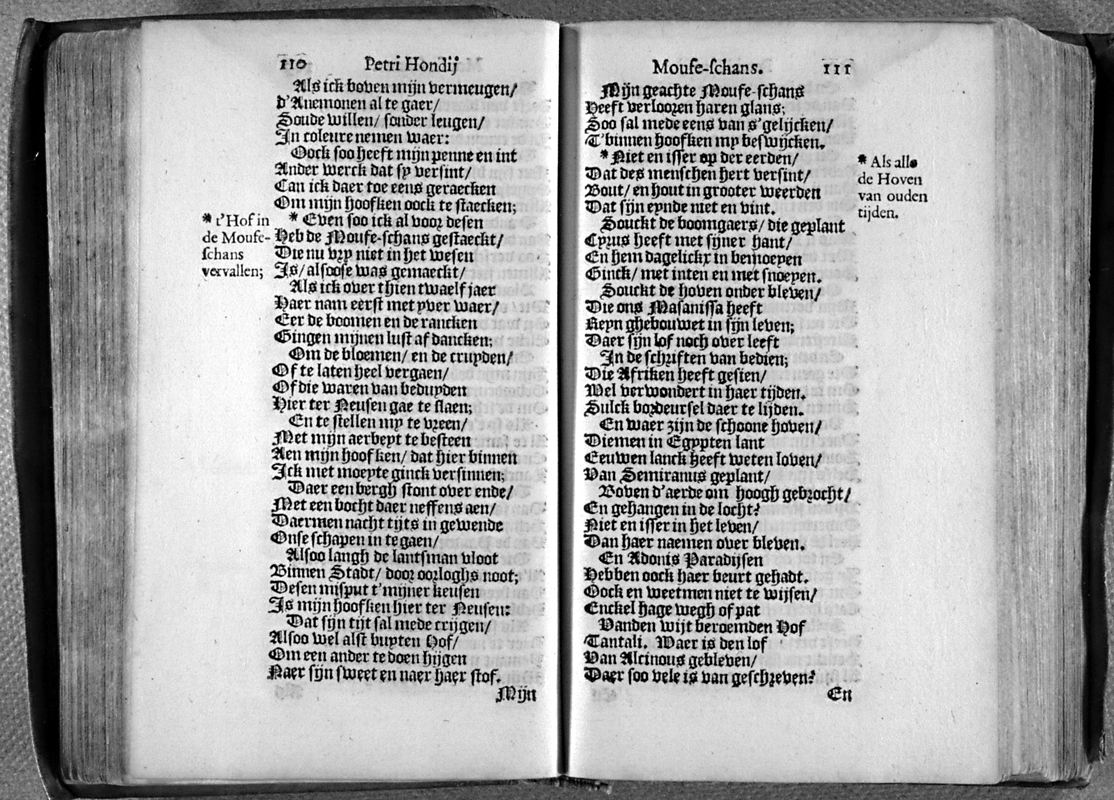 110 Petri Hondij
Als ick boven mijn vermeugen/
d'Anemonen al te gaer/
Soude willen/ sonder leugen/
In coleure nemen waer:
Oock soo heeft mijn penne en int
Ander werck dat sy versint/
Can ick daer toe eens geraecken
Om mijn hoofken oock te staecken;
* t'Hof in
de Mouse-
schans
vervallen;
* Even soo ick al voor desen
Heb de Mouse-schans gestaeckt/
Die nu vry niet in het wesen
Is/ alsoose was gemaeckt/
Als ick over thien twaelf jaer
Haer nam eerst met yver waer/
Eer de boomen en de rancken
Gingen mijnen lust af dancken;
Om de bloemen/ en de cruyden/
Of te laten heel vergaen/
Of die waren van beduyden
Hier ter Neusen gae te slaen;
En te stellen my te vreen/
Met mijn aerbeyt te besteen
Aen mijn hoofken/ dat hier binnen
Ick met moeyte ginck versinnen;
Daer een bergh stont over ende/
Met een bocht daer neffens aen/
Daermen nacht tijts in gewende
Onse schapen in te gaen/
Alsoo langh de lantsman vloot
Binnen Stadt/ door oorloghs noot;
Desen misput t'mijner keusen
Is mijn hoofken hier ter Neusen:
Dat sijn tijt sal mede crijgen/
Alsoo wel alst buyten Hof/
Om een ander te doen hijgen
Naer sijn sweet en naer haer stof.
Mijn
Mouse-schans. 111
Mijn geachte Mouse-schans
Heeft verlooren haren glans;
Soo sal mede eens van s'gelijcken/
T'binnen hoofken my beswijcken.
* Niet en isser op der eerden/
Dat des menschen hert versint/
Bout/ en hout in grooter weerden
Dat sijn eynde niet en vint.
* Als alle
de Hoven
van ouden
tijden.
Souckt de boomgaers/ die geplant
Cyrus heeft met sijner hant/
En hem dagelickx in bemoeyen
Ginck/ met inten en met snoeyen.
Souckt de hoven onder bleven/
Die ons Masanissa heeft
Reyn ghebouwet in sijn leven;
Daer sijn lof noch over leeft
In de schriften van bedien;
Die Afriken heeft gesien/
Wel verwondert in haer tijden.
Sulck bordeursel daer te lijden.
En waer zijn de schoone hoven/
Diemen in Egypten lant
Eeuwen lanck heeft weten loven/
Van Semiramis geplant/
Boven d'aerde om hoogh gebrocht/
En gehangen in de locht?
Niet en isser in het leven/
Dan haer naemen over bleven.
En Adonis Paradijsen
Hebben oock haer beurt gehadt.
Oock en weetmen niet te wijsen/
Enckel hage wegh of pat
Vanden wijt beroemden Hof
Tantali. Waer is den lof
Van Alcinous gebleven/
Daer soo vele is van geschreven?
En